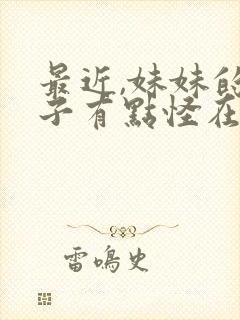 最近,妹妹的
子有點怪在
雷鳴史